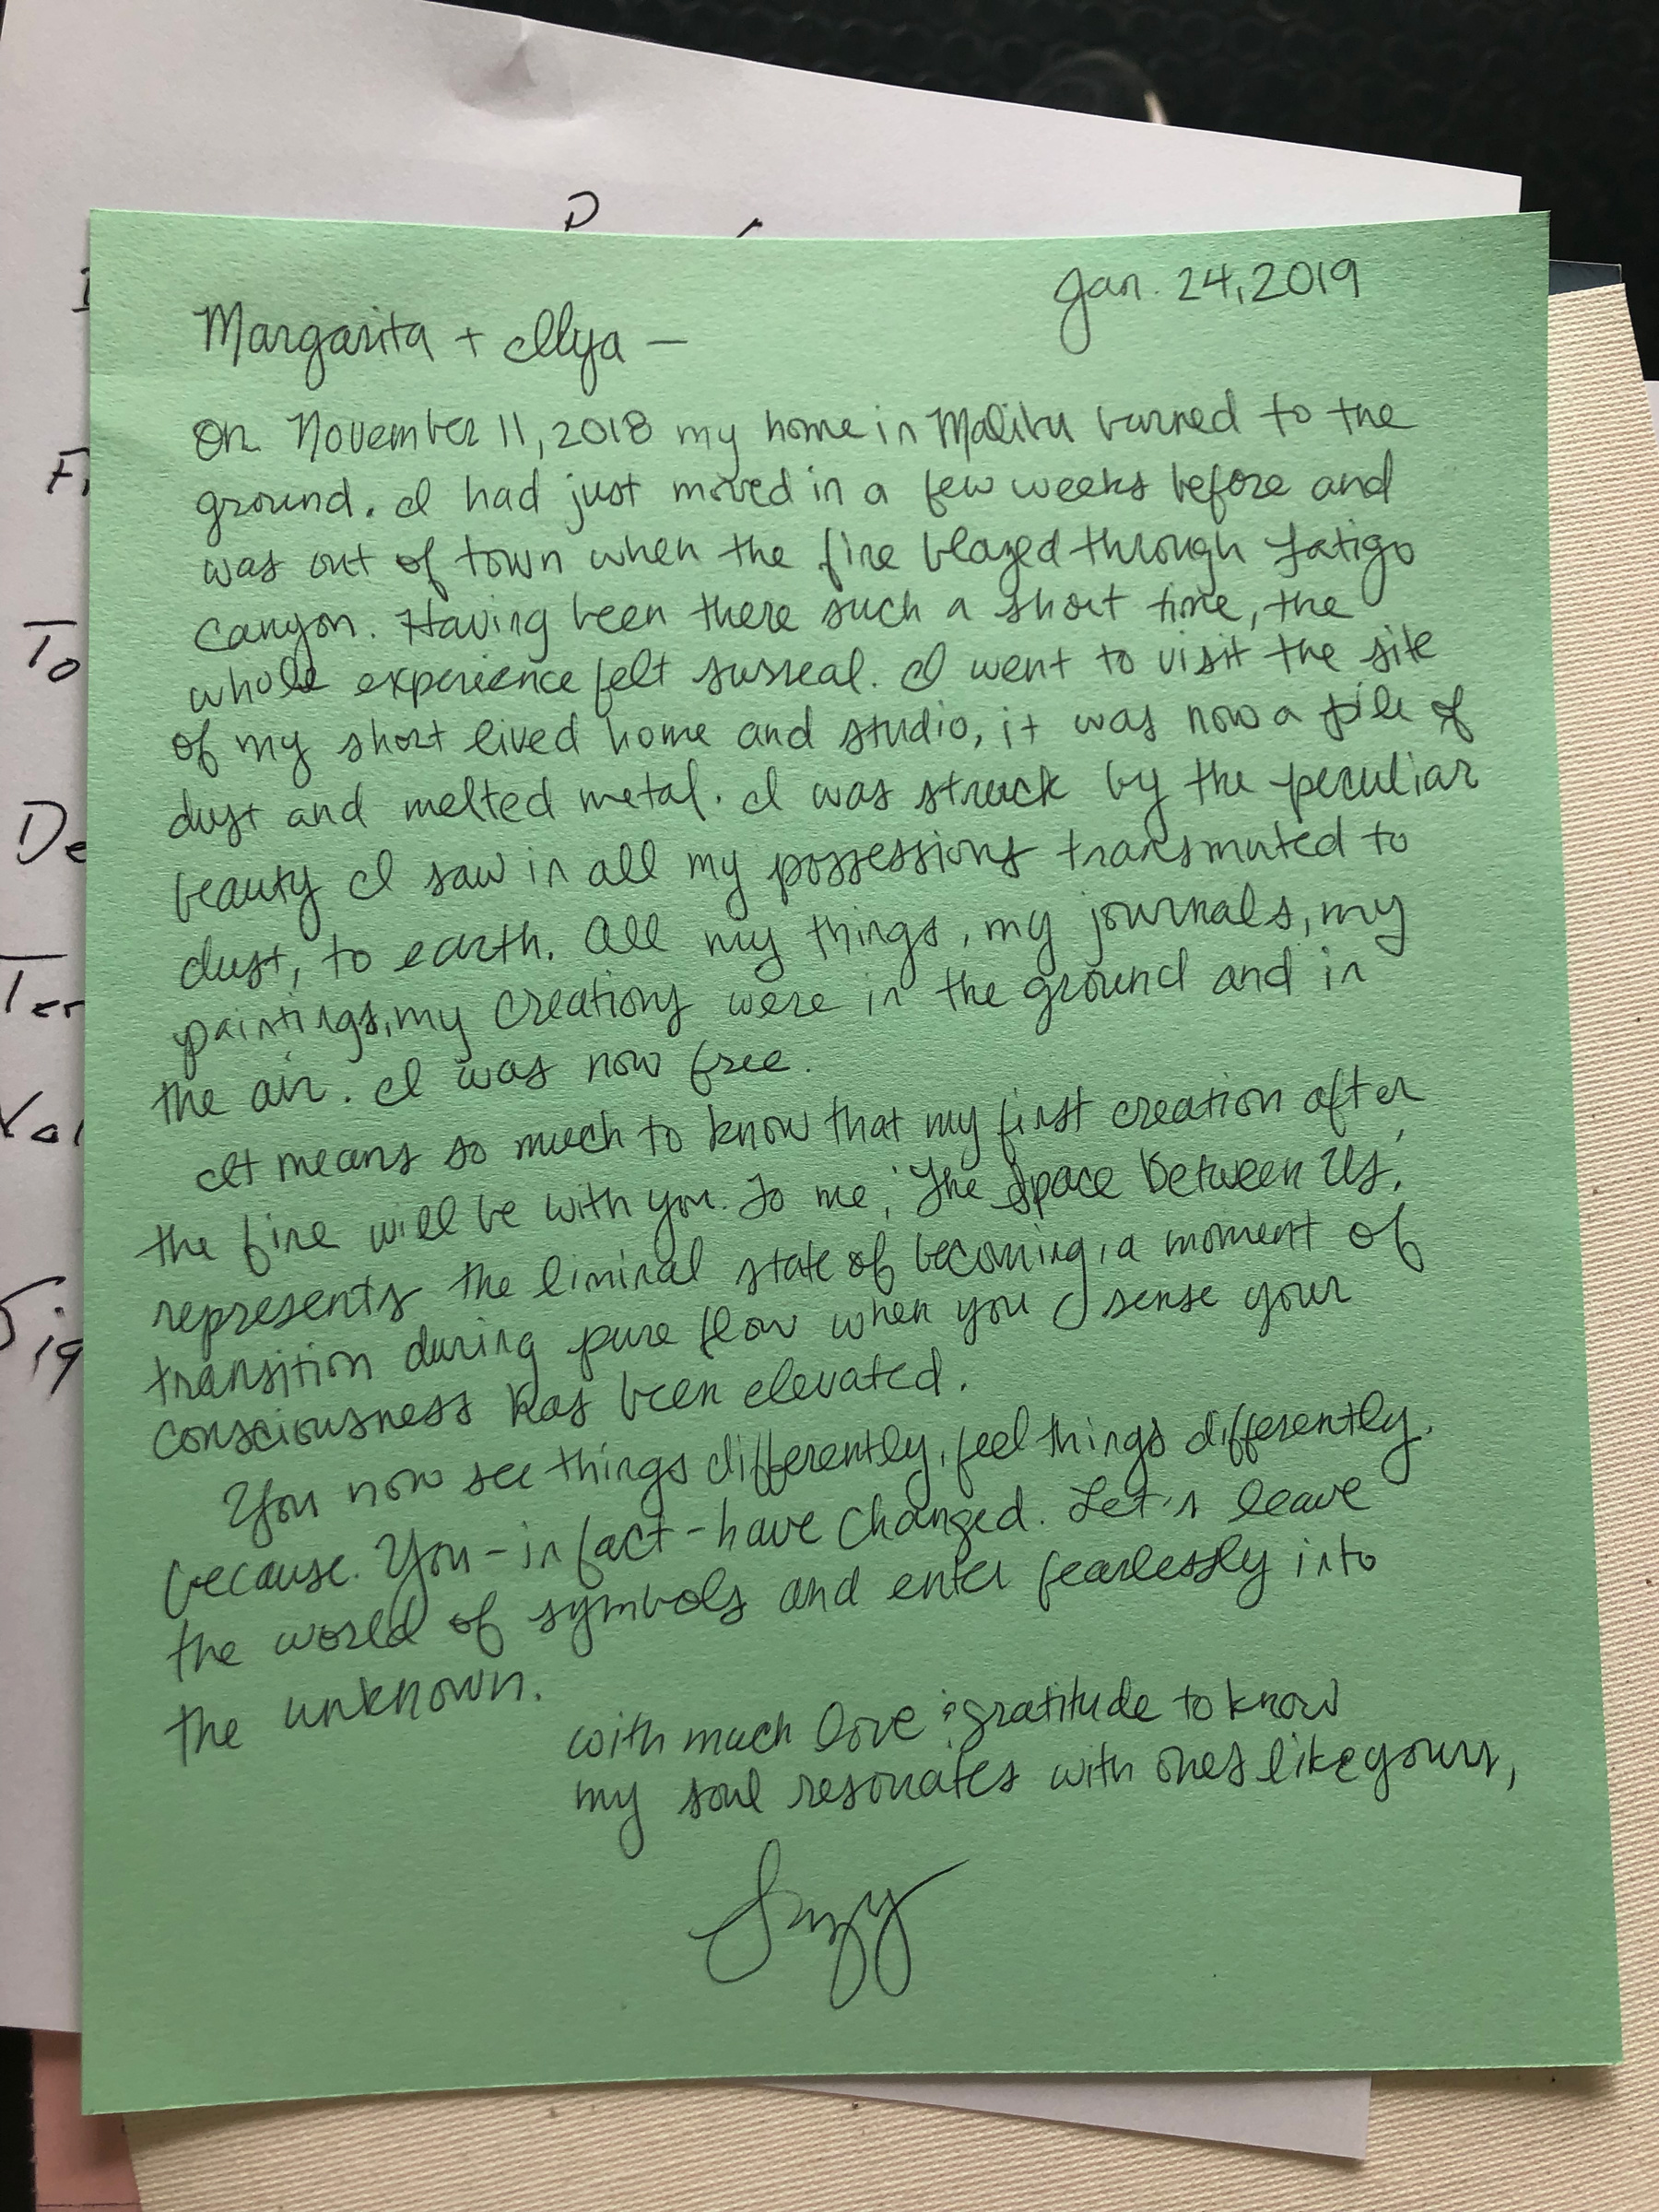 Jan. 24, 2019
Margarita + Ilya —
On November 11, 2018 my home in Malibu burned to the
ground. I had just moved in a few weeks before and
was out of town when the fire blazed through Latigo
Canyon. Having been there such a short time, the
whole experience felt surreal. I went to visit the site
of my short lived home and studio, it was now a pile of
dust and melted metal. I was struck by the peculiar
beauty I saw in all my possessions transmuted to
dust, to earth. All my things, my journals, my
paintings, my creations were in the ground and in
the air. I was now free.
It means so much to know that my first creation after
the fire will be with you. To me, 'The Space Between Us,'
represents the liminal state of becoming, a moment of
transition during pure flow when you sense your
consciousness has been elevated.
You now see things differently, feel things differently.
because. You - in fact - have changed. Let's leave
the world of symbols and enter fearlessly into
the unknown.
with much love & gratitude to know
my soul resonates with ones like yours,
Suzy
To
De
Ter
Val
Sig